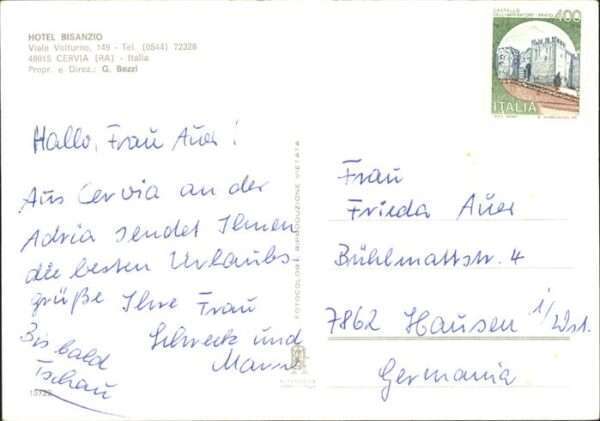 HOTEL BISANZIO
Viale Volturno, 149 - Tel. (0544) 72326
48015 CERVIA (RA) - Italia
Propr. e Direz.: G. Bezzi
CASTELLO
400
ITALIA
Hallo, Frau Auer!
Aus Cervia an der
Adria sendet Ihnen
die besten Urlaubs
grüße Ihre Frau
Schreck und
Bis bald
Tschau
FOTOCOLOR RIPRODUZIONE VIETATA
Frau
Frieda Auer
Bühlmattstr. 4
7862 Hausen i/Wst.
Germania